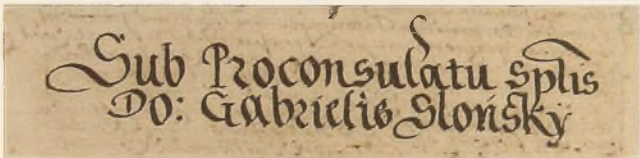 Sub Proconsulatu splis
Do: Gabrielis Słoński